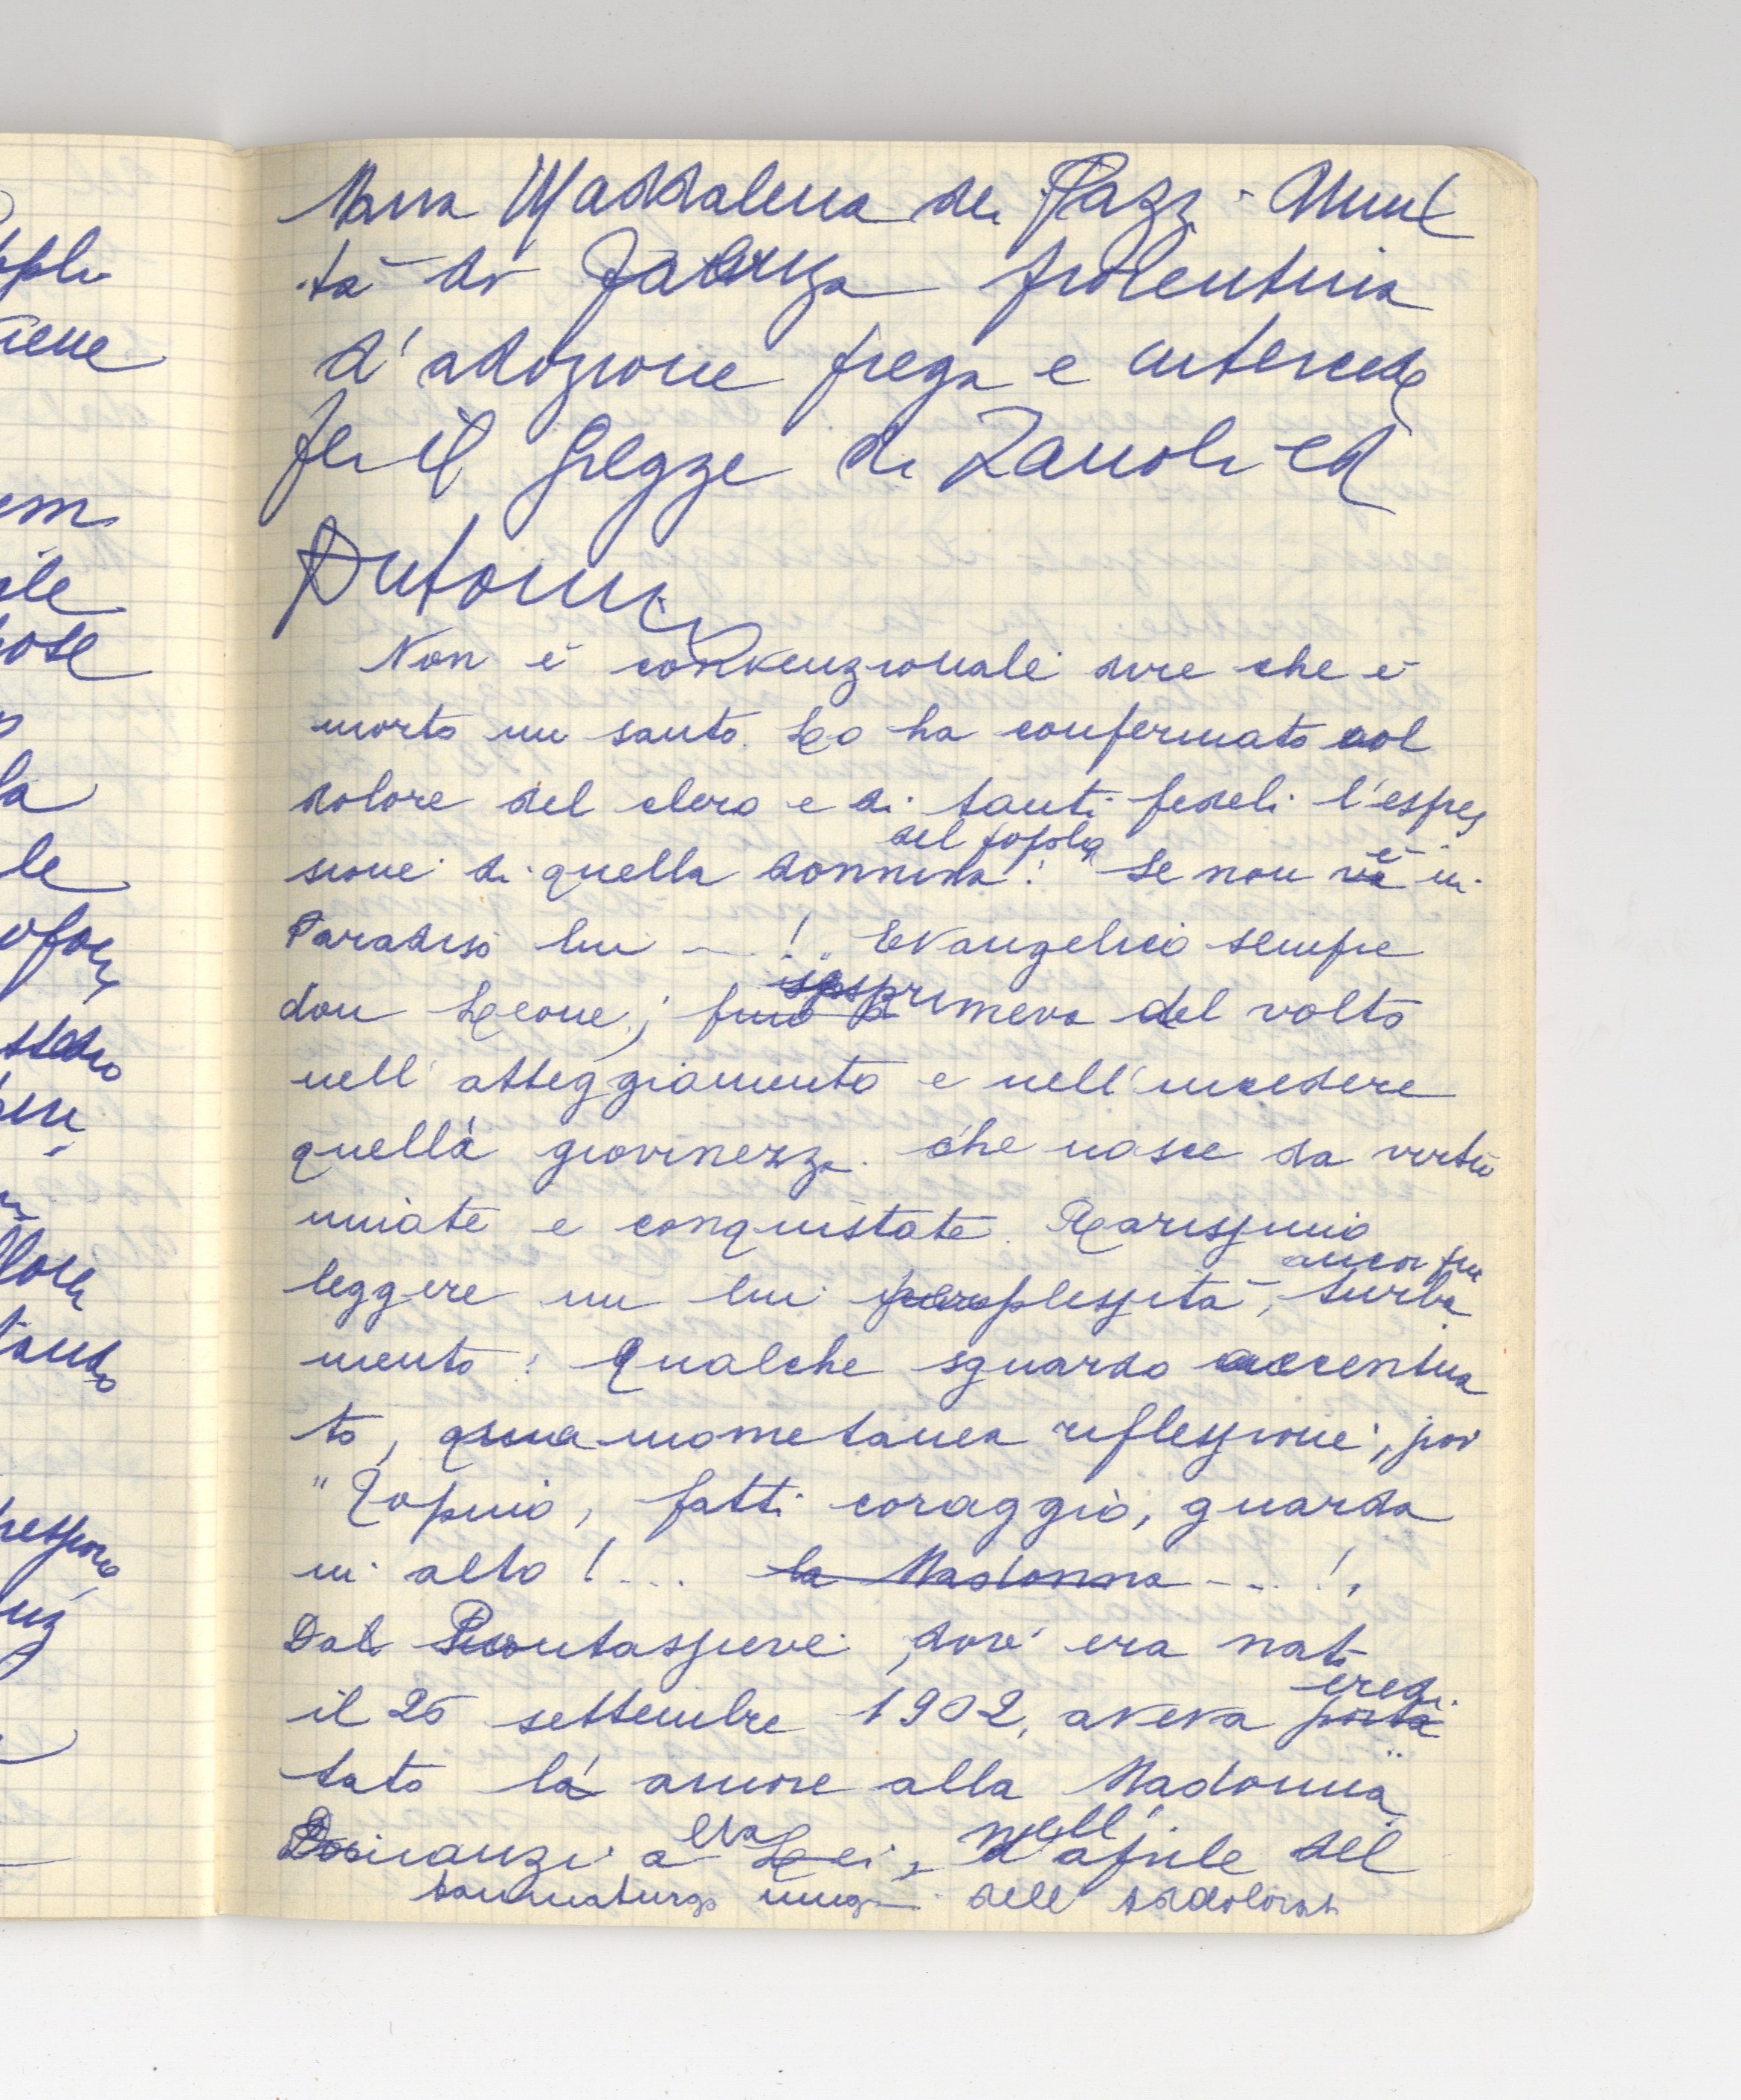 Maria Maddalena de Pazzi - Umil
tà di
d'adozione prega e intercede
per il gregge di Zanobi ed
Antonino
Non è convenzionale dire che è
morto un santo. Lo ha confermato col
dolore del clero e di tanti fedeli l'espres
sione di quella donnina del popolo: "Se non è in
Paradiso lui ...!" Evangelico sempre
don Leone; esprimeva del volto
nell'atteggiamento e nell'incedere
quella giovinezza che nasce da virtù
innate e conquistate. Rarissimo
leggere in lui perplessità, ancor più turba
mento: qualche sguardo accentua
to, una mometanea riflessione, poi
"Topino, fatti coraggio, guarda
in alto! ... la Madonna ...!"
Dal Pontassieve, dov'era nato
il 25 settembre 1902, aveva eredi
tato là amore alla Madonna
Dinanzi a nell'aprile del
taumaturga dell'Addolorata